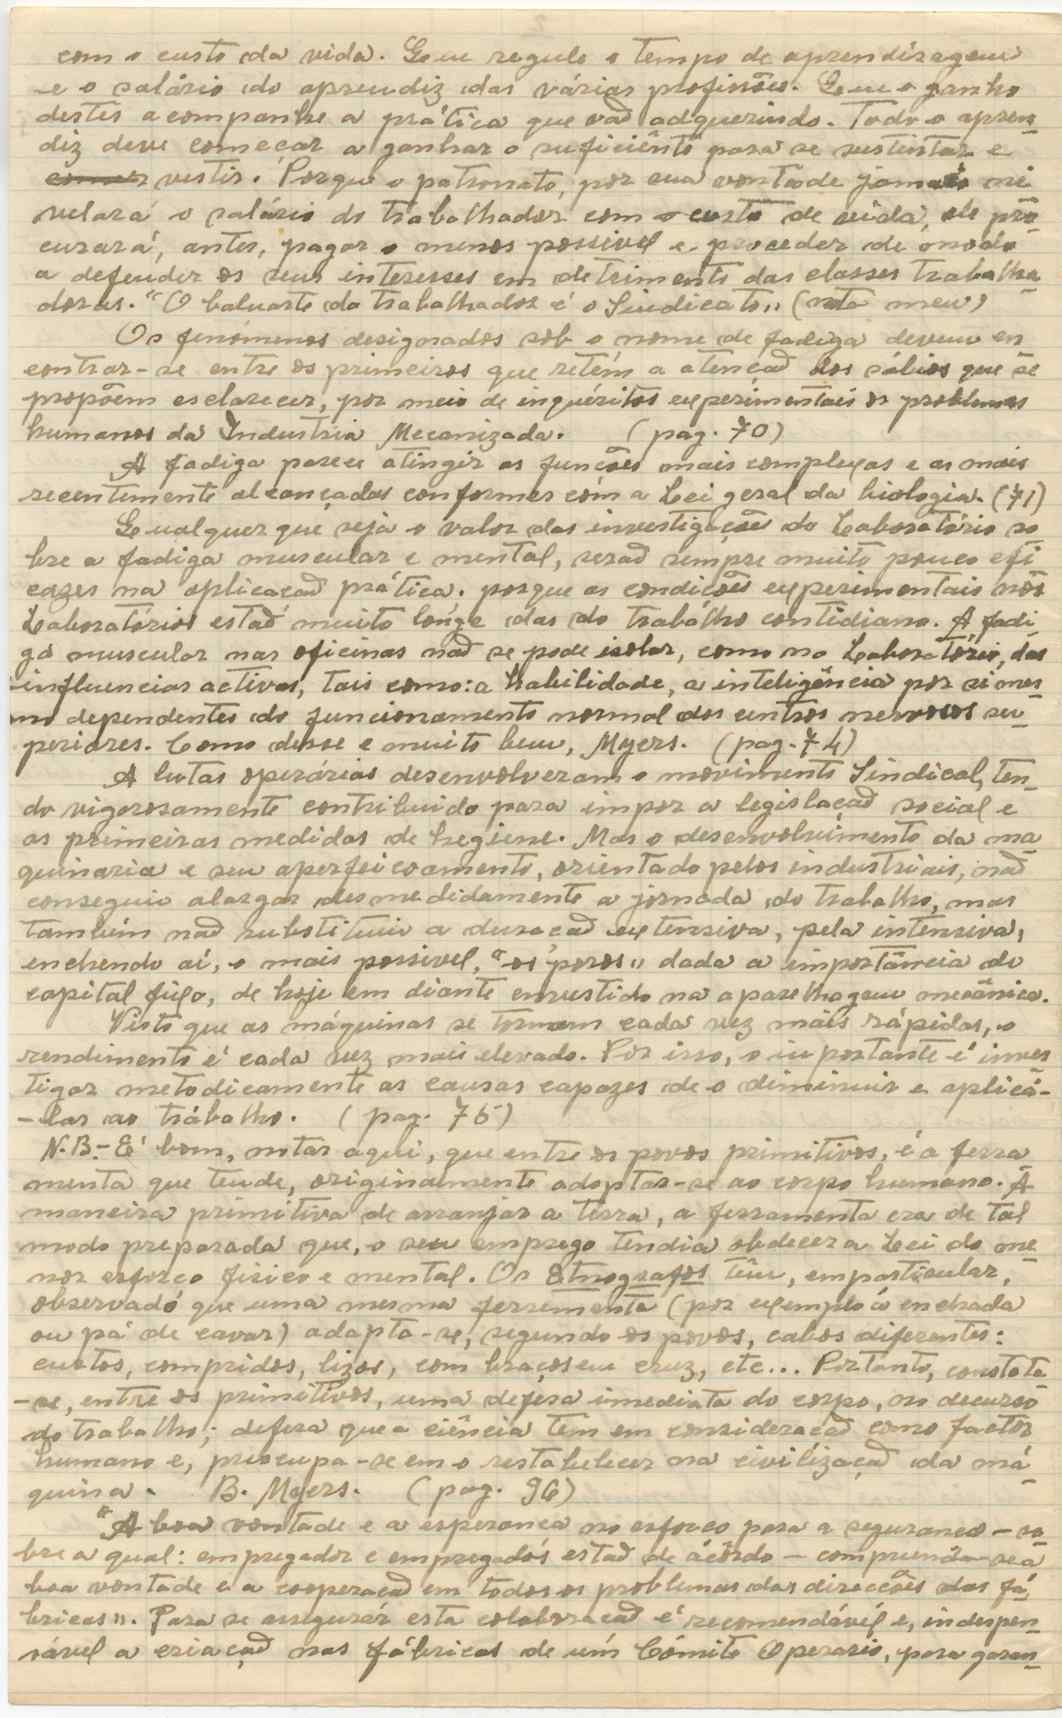 com o custo da vida. Que regule o tempo de aprendizagem
e o salário do aprendiz das várias profissões. Que o ganho
destes acompanhe a prática que vaõ adquerindo. Todo o apren-
diz deve começar a ganhar o suficiênte para se sustentar e
comer vestir. Porque o patronato, por sua vontade jamais ni
velará o salário do trabalhador com o custo de vida, ele pro-
curará, antes, pagar o menos possivel e proceder de modo
a defender os seus interesses em detrimento das classes trabalha-
doras. "O baluarte do trabalhador é o Sindicato" (nota meu)
Os fenómenos designados sob o nome de fadiga devem en
contrar-se entre os primeiros que retém a atençaõ dos sábios que se
propõem esclarecer, por meio de inquéritos experimentais os problemas
humanos da Industria Mecanizada. (pag. 70)
A fadiga parece atingir as funcões mais complexas e as mais
recentemente alcançadas conformes com a Lei geral da biologia. (71)
Qualquer que seja o valor das investigações do Laboratório so
bre a fadiga muscular e mental, seraõ sempre muito pouco efi
cazes na aplicaçaõ prática. porque as condições experimentais nos
Laboratórios estaõ muito longe das do trabalho contidiano. A fadi-
ga muscular nas oficinas naõ se pode isolar, como no Laboratório, das
influencias activas, tais como: a habilidade, a inteligência por si mes-
mo dependentes do funcionamento normal dos centros nervosos su-
periores. Como disse e muito bem, Myers. (pag. 74)
A lutas operárias desenvolveram o movimento Sindical, ten-
do vigorosamente contribuido para impor a legislaçaõ social e
as primeiras medidas de hegiene. Mas o desenvolvimento da ma-
quinaria e seu aperfeicoamento, orientado pelos industriais, naõ
conseguio alargar desmedidamente a jornada do trabalho, mas
também naõ substituiu a duraçaõ extensiva, pela intensiva,
enchendo aí, o mais possivel, "os poros" dada a importância do
capital fixo, de hoje em diante envestido na aparelhagem mecânica.
Visto que as máquinas se tornam cada vez mais rápidas, o
rendimento é cada vez mais elevado. Por isso, o importante é inves
tigar metodicamente as causas capazes de o diminuir e aplicá-
-las ao trábalho. (pag. 75)
N.B.- É bom, notar aqui, que entre os povos primitivos, é a ferra
menta que tende, originamente adaptar-se ao corpo humano. A
maneira primitiva de arranjar a terra, a ferramenta era de tal
modo preparada que, o seu emprego tendia obdecer a Lei do me-
nor esforco fisico e mental. Os Etnografos têm, em particular,
observado que uma mesma ferrementa (por exemplo a enchada
ou pá de cavar) adapta-se, segundo os povos, cabos diferentes:
curtos, compridos, lizos, com braços em cruz, etc... Portanto, constata
-se, entre os primitivos, uma defesa imediata do corpo, no decurso
do trabalho; defesa que a ciência tem em consideraçaõ como factor
humano e, preocupa-se em o restabelecer na civilizaçaõ da má-
quina. B. Myers. (pag. 96)
"A boa vontade e a esperança no esforco para a seguranca - so-
bre a qual: empregador e empregados estaõ de acôrdo - compreende-se a
boa vontade e a cooperaçaõ em todos os problemas das direcções das fá-
bricas". Para se assegurár esta colaboraçaõ é recomendável e, indespen-
sável a criaçaõ nas fábricas de um Cómite Operario, para garan-